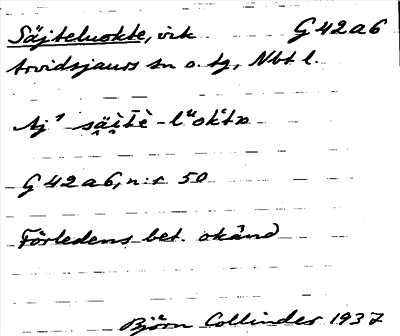 Säjteluokte, vik G 42 a 6
Arvidsjaurs sn o. tg, Nbt l.
Aj¹ sä̭i̭tē -lᵘokᵗtɒ
G 42 a 6, n:r 50
Förledens bet. okänd
Björn Collinder 1937